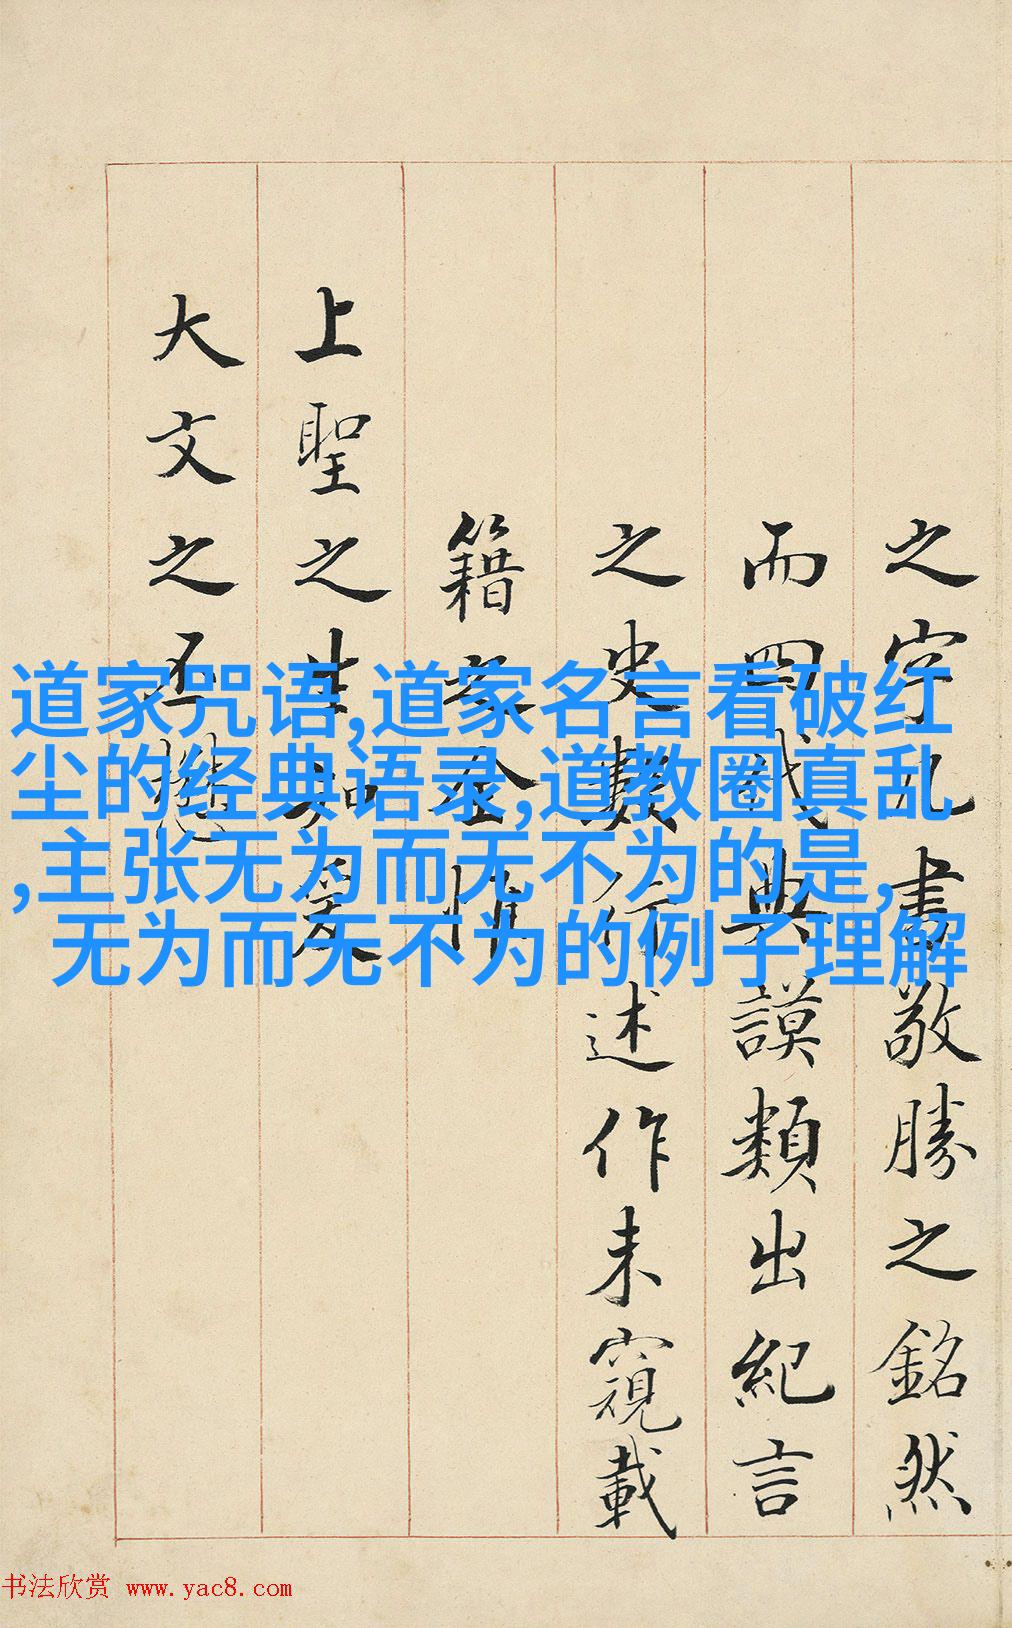 之字書敬勝之銘然
而四代典謨類出紀言
之史數行述作未窺載
籍之全惟
上聖之生知
大文之丕
道家咒语,道家名言看破红
尘的经典语录,道教圈真乱
,主张无为而无不为的是,
无为而无不为的例子理解
书法欣赏 www.yac8.com